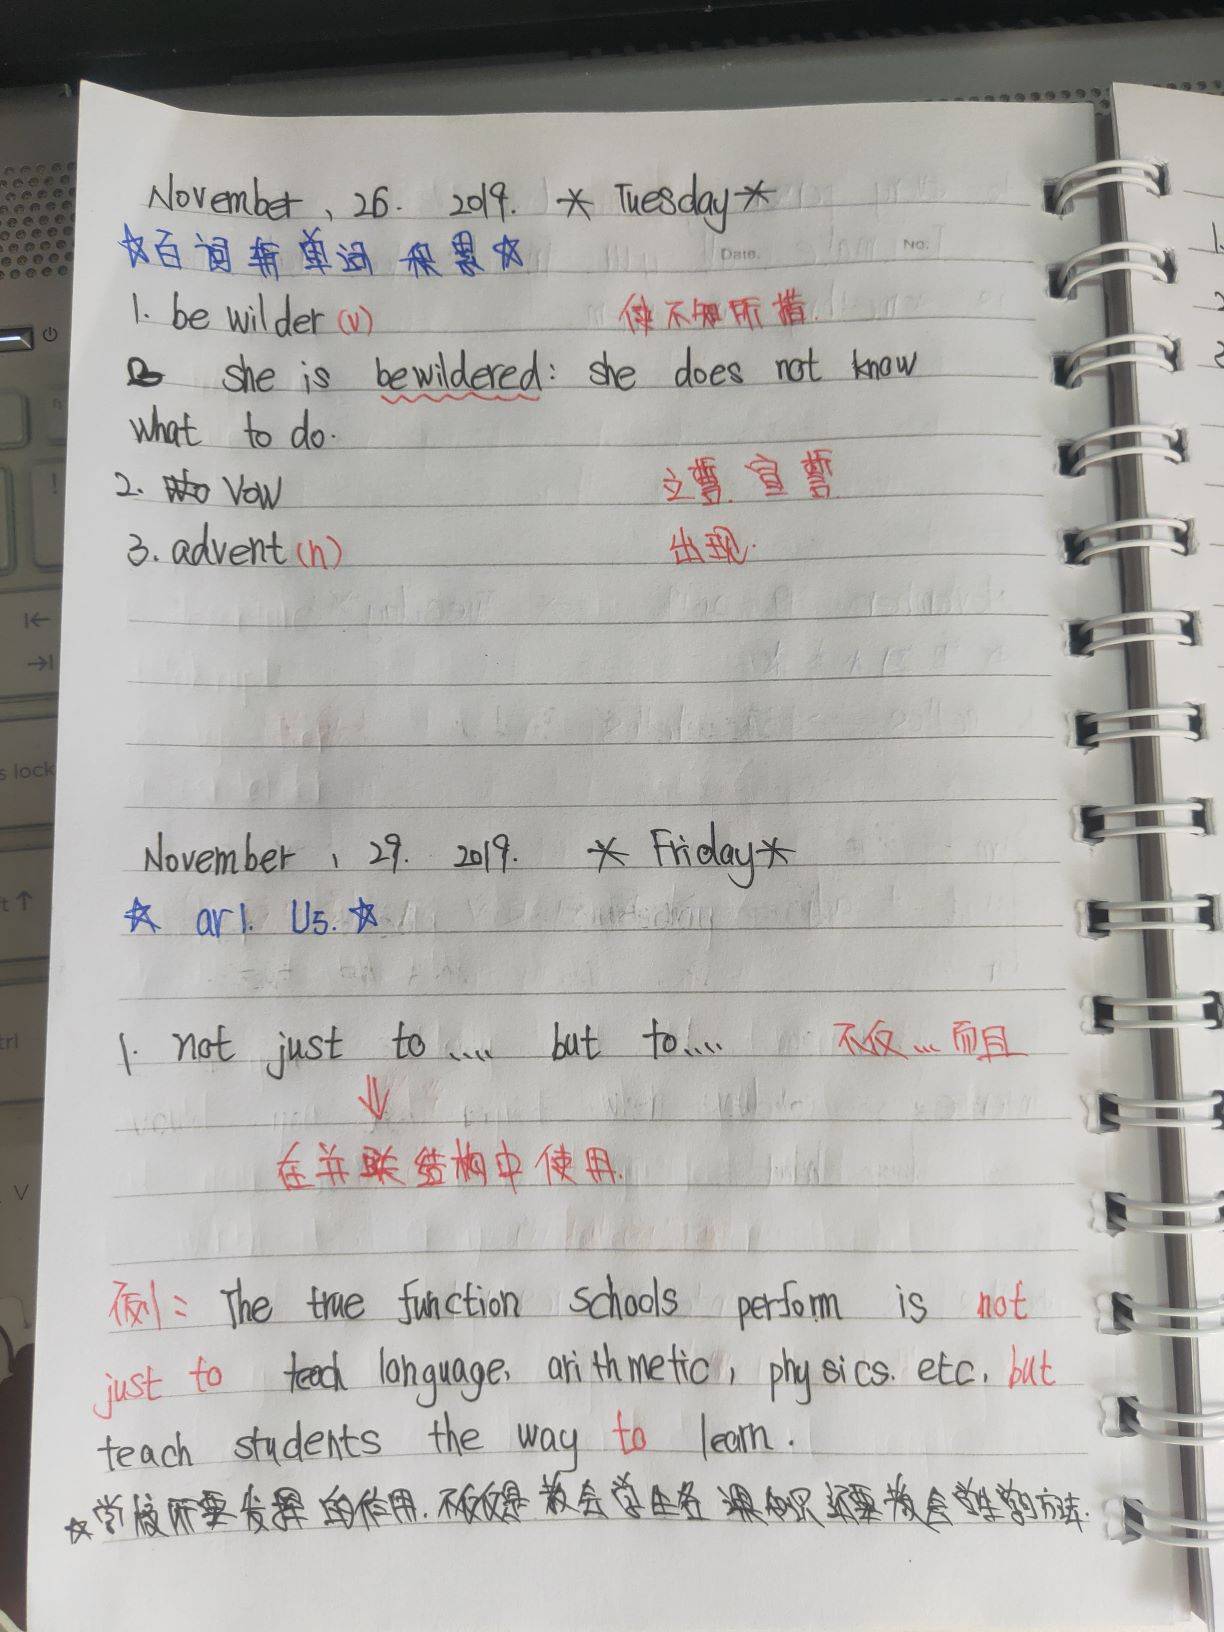 November, 26. 2019. * Tuesday *
☆百词斩单词 积累☆
No:
Date.
1. be wilder (v) 使不知所措.
she is bewildered: she does not know
what to do.
2. vow 立誓. 宣誓
3. advent (n) 出现.
November, 29. 2019. * Friday *
☆ ar1. U5. ☆
1. not just to .... but to.... 不仅...而且
↓
在并联结构中使用.
例: The true function schools perform is not
just to teach language, arithmetic, physics. etc. but
teach students the way to learn.
☆学校所要发挥的作用.不仅仅是教会学生各课知识还要教会学生学习方法.
s lock
t ↑
trl
V
1.
2
3